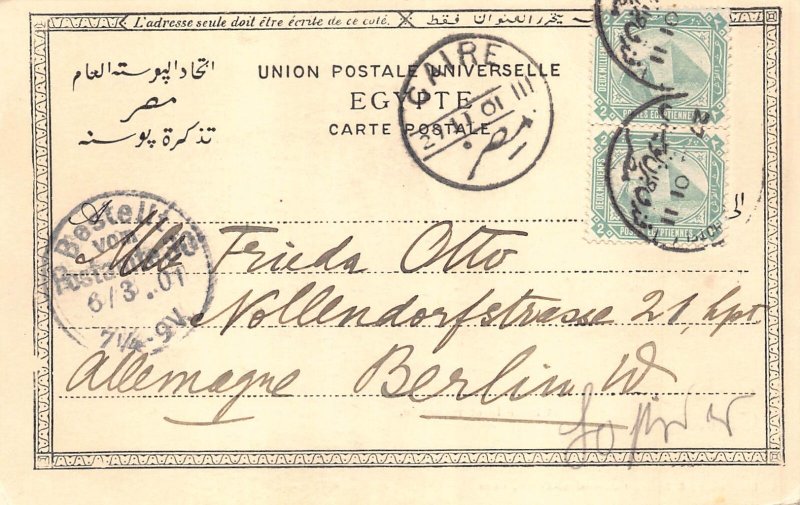 L'adresse seule doit être écrite de ce coté. يحرر العنوان فقط
اتحاد البوسته العام
مصر
تذكرة بوسته
UNION POSTALE UNIVERSELLE
EGYPTE
CARTE POSTALE
CAIRE
01 III
مصر
2 2
DEUX MILLIEMES
POSTES EGYPTIENNES
2 2
DEUX MILLIEMES
POSTES EGYPTIENNES
الى
Bestellt
vom
Postamte
6/3.01
7¼-9V.
A Mlle Frieda Otto
Nollendorfstrasse 21, hpt
Allemagne Berlin W